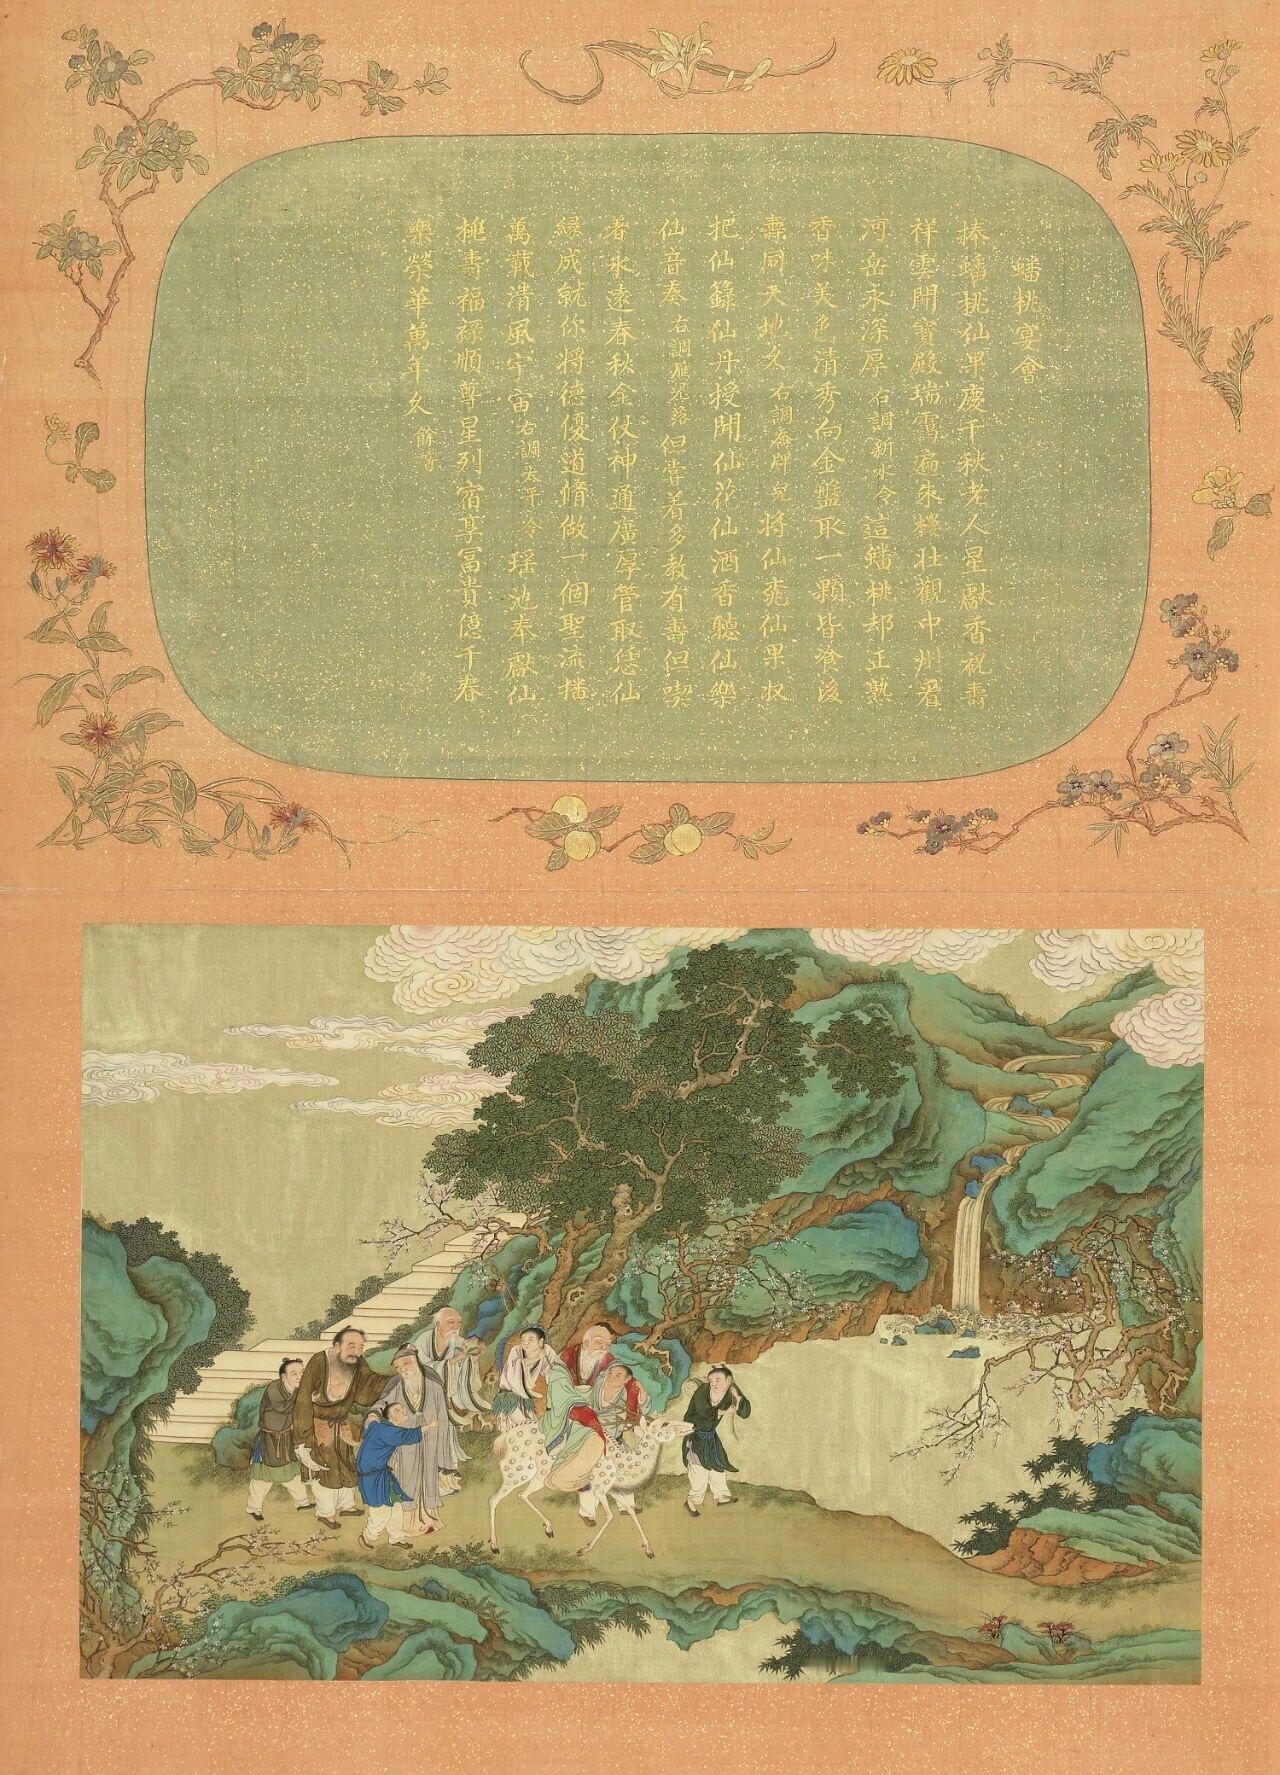 蟠桃宴會
捧蟠桃仙眾慶千秋老人星獻香祝壽
祥雲開寶殿瑞靄遍朱樓壯觀中州看
河岳永深厚 右調新水令 這蟠桃却正熟
香味美色清秀向金盤取一顆皆飡後
壽同天地久 右調喬牌兒 將仙瓶仙果収
把仙籙仙丹授開仙花仙酒香聽仙樂
仙音奏 右調雁兒落 但喜着多教有壽但喫
着永遠春秋全仗神通廣厚管取恁仙
緣成就你將德優道脩做一個聖流播
萬載清風宇宙 右調太平令 瑤池奉獻仙
桃壽福祿順尊星列宿享富貴億千春
樂榮華萬年久 餘